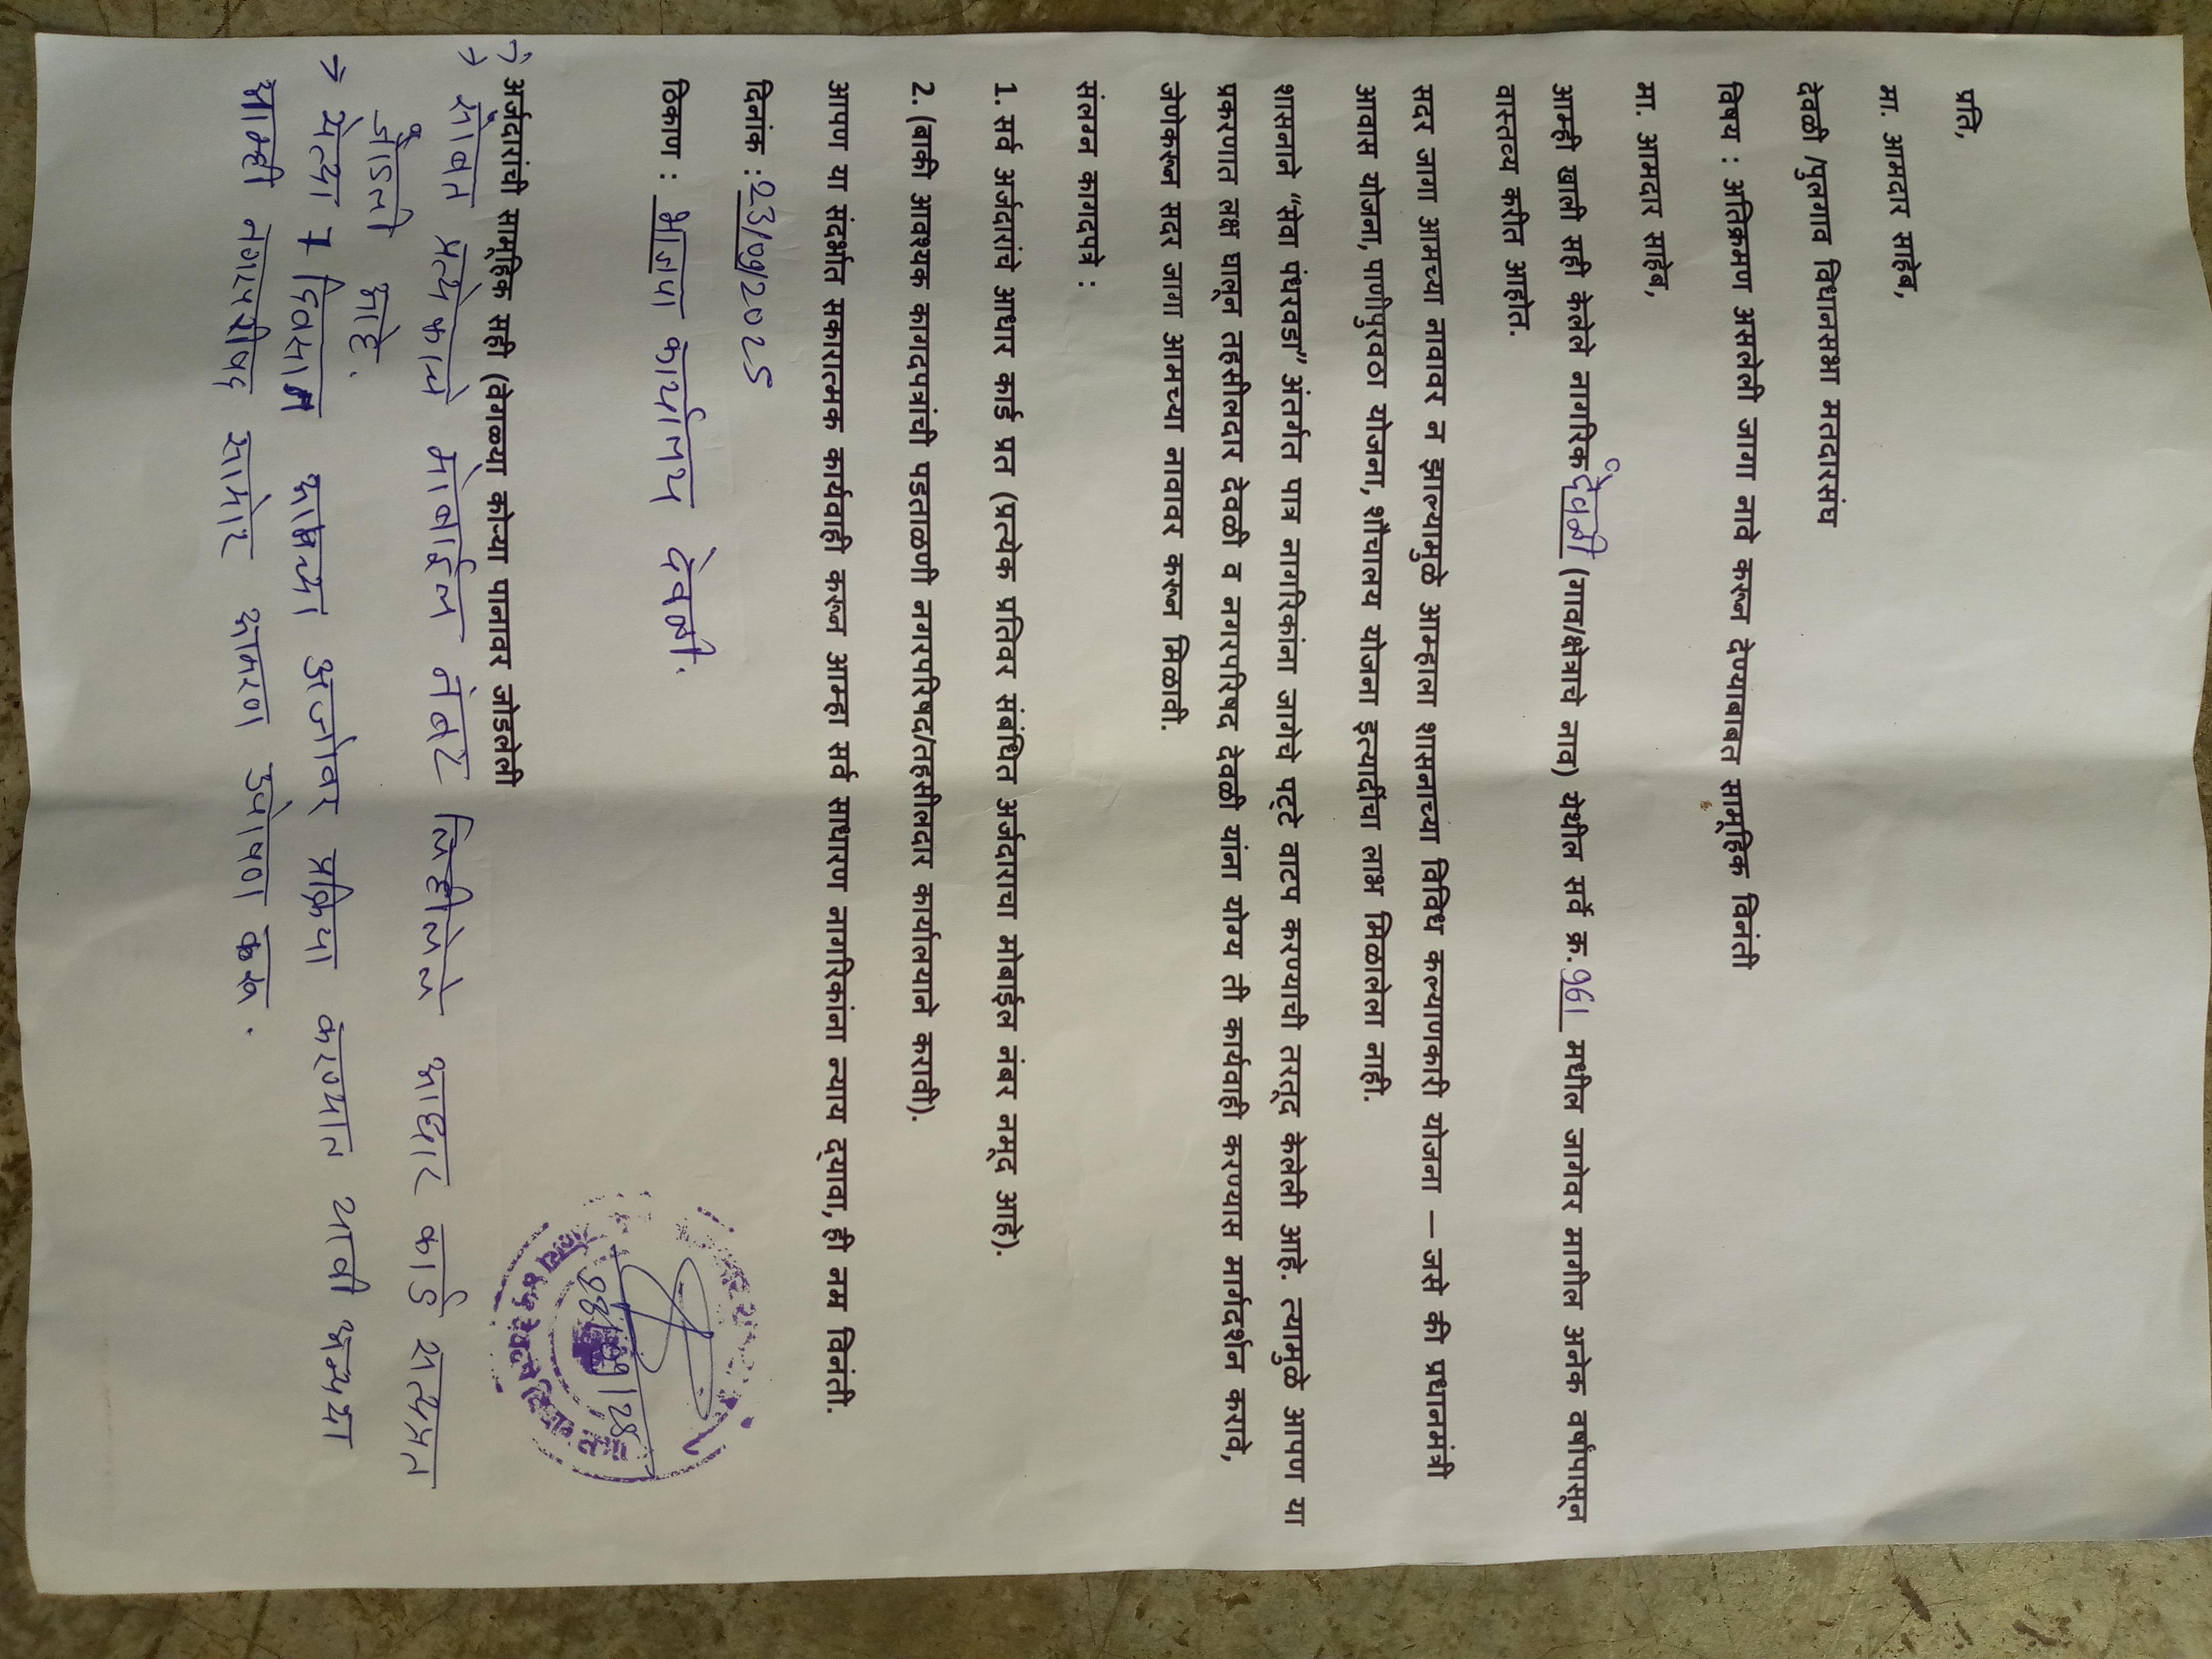 प्रति,
मा. आमदार साहेब,
देवळी /पुलगाव विधानसभा मतदारसंघ
विषय : अतिक्रमण असलेली जागा नावे करून देण्याबाबत सामूहिक विनंती
मा. आमदार साहेब,
आम्ही खाली सही केलेले नागरिक देवळी (गाव/क्षेत्राचे नाव) येथील सर्वे क्र. 961 मधील जागेवर मागील अनेक वर्षांपासून
वास्तव्य करीत आहोत.
सदर जागा आमच्या नावावर न झाल्यामुळे आम्हाला शासनाच्या विविध कल्याणकारी योजना — जसे की प्रधानमंत्री
आवास योजना, पाणीपुरवठा योजना, शौचालय योजना इत्यादींचा लाभ मिळालेला नाही.
शासनाने “सेवा पंधरवडा” अंतर्गत पात्र नागरिकांना जागेचे पट्टे वाटप करण्याची तरतूद केलेली आहे. त्यामुळे आपण या
प्रकरणात लक्ष घालून तहसीलदार देवळी व नगरपरिषद देवळी यांना योग्य ती कार्यवाही करण्यास मार्गदर्शन करावे,
जेणेकरून सदर जागा आमच्या नावावर करून मिळावी.
संलग्न कागदपत्रे :
1. सर्व अर्जदारांचे आधार कार्ड प्रत (प्रत्येक प्रतिवर संबंधित अर्जदाराचा मोबाईल नंबर नमूद आहे).
2. (बाकी आवश्यक कागदपत्रांची पडताळणी नगरपरिषद/तहसीलदार कार्यालयाने करावी).
आपण या संदर्भात सकारात्मक कार्यवाही करून आम्हा सर्व साधारण नागरिकांना न्याय द्यावा, ही नम्र विनंती.
दिनांक : 23/09/2025
ठिकाण : भाजपा कार्यालय देवळी.
अर्जदारांची सामूहिक सही (वेगळ्या कोऱ्या पानावर जोडलेली
→ सोबत प्रत्येकाचे मोबाईल नंबर लिहीलेले आधार कार्ड सत्यप्रत
जोडली आहे.
→ येत्या 7 दिवसात आमच्या अर्जावर प्रक्रिया करण्यात यावी अन्यथा
आम्ही नगरपरीषद समोर आमरण उपोषण करू.